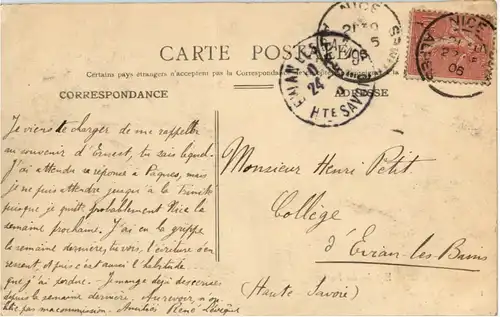 CARTE POSTALE
Certains pays étrangers n'acceptent pas la Correspondance
CORRESPONDANCE
ADRESSE
NICE
06
NICE
EVIAN-LES-BAINS
24
HTE SAVOIE
Je viens te charger de me rappeler
au souvenir d'Ernest, tu sais lequel.
J'ai attendu sa réponse à Pâques, mais
je ne puis attendre jusqu'à la trinité
puisque je quitte probablement Nice la
semaine prochaine. J'ai eu la grippe
la semaine dernière, tu vois, l'écriture s'en
ressent, et puis c'est aussi l'habitude
que j'ai perdue. Je mange déjà des cerises
depuis la semaine dernière. Au revoir, n'ou-
blie pas ma commission. Amitiés René
Monsieur Henri Petit.
Collège
d'Evian-les-Bains
(Haute Savoie)